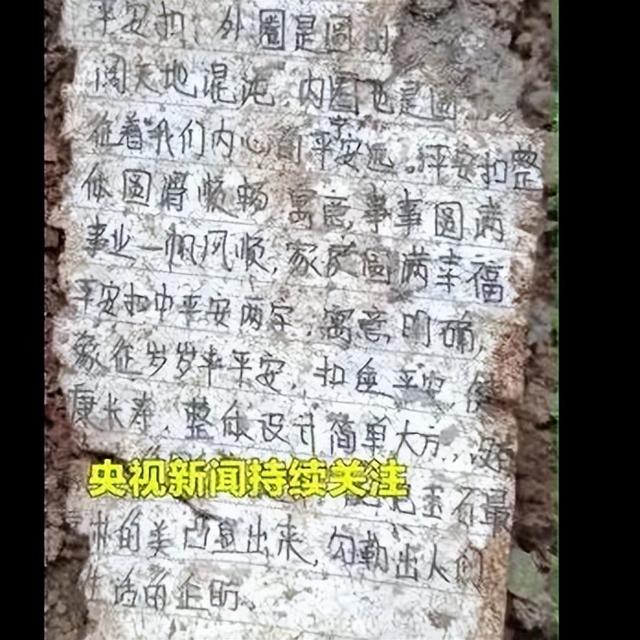 平安扣,外圈是圆的
阔天地混沌,内圈也是圆
征着我们内心的平安远。平安扣整
体圆滑顺畅 寓意事事圆满
事业一帆风顺,家庭圆满幸福
平安扣中平安两字,寓意明确,
象征岁岁平平安,扣住平安 健
康长寿,整体设计简单大方,
央视新闻持续关注
把玉石最
的美凸显出来,勾勒出人们
生活的企盼。